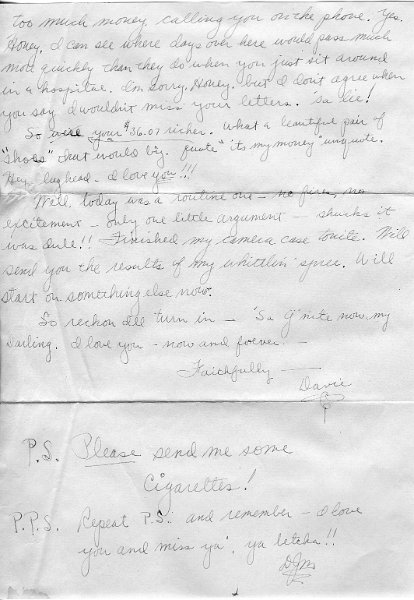 too much money calling you on the phone. Yes.
Honey, I can see where days over here would pass much
more quickly than they do when you just sit around
in a hospital. I'm sorry, Honey. but I don't agree when
you say I wouldn't miss your letters. 'Sa lie!
So your $36.07 richer. What a beautiful pair of
"Shoes" that would buy. quote "its my money unquote.
Hey lughead - I love you!!!
Well, today was a routine one - no fires, no
excitement - only one little argument - shucks it
was dull!! Finished my camera case tonite. Will
send you the results of my whittlin' spree. Will
start on something else now.
So reckon I'll turn in - 'Sa G'nite now my
darling. I love you - now and forever -
Faithfully -
Davie
P.S. Please send me some
Cigarettes!
P.P.S. Repeat P.S. and remember - I love
you and miss ya', ya betcha!!